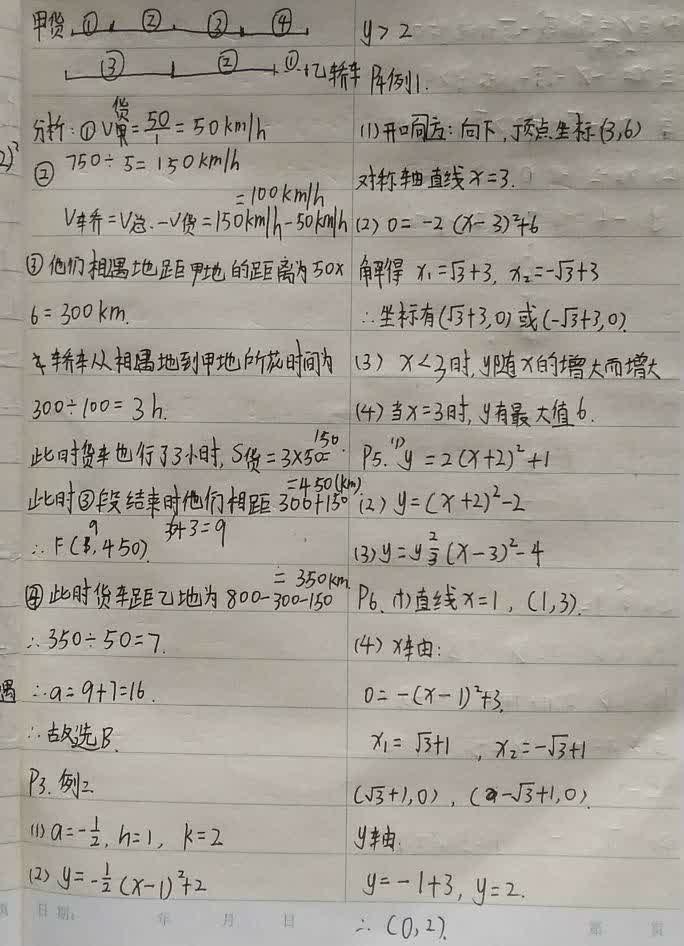 甲货 ① ② ③ ④
③ ② ① 乙轿车
分析: ① V货 = 50/1 = 50km/h
② 750÷5=150km/h
=100km/h
V轿=V总-V货=150km/h-50km/h
③ 他们相遇地距甲地的距离为50×
6=300km.
轿车从相遇地到甲地所花时间为
300÷100=3h.
此时货车也行了3小时, S货=3×50=150.
=450(km)
此时③段结束时他们相距300+150
6+3=9
∴F(9,450)
=350km
④ 此时货车距乙地为800-300-150
∴350÷50=7.
∴a=9+7=16.
∴故选B.
P3. 例2
(1) a=-1/2, h=1, k=2
(2) y=-1/2(x-1)²+2
y>2
例1.
(1) 开口方向: 向下, 顶点坐标(3,6)
对称轴直线x=3.
(2) 0=-2(x-3)²+6
解得 x₁=√3+3, x₂=-√3+3
∴坐标有(√3+3,0)或(-√3+3,0)
(3) x<3时, y随x的增大而增大
(4) 当x=3时, y有最大值6.
P5. (1) y=2(x+2)²+1
(2) y=(x+2)²-2
(3) y=2/3(x-3)²-4
P6. (1) 直线x=1, (1,3).
(4) x轴:
0=-(x-1)²+3.
x₁=√3+1, x₂=-√3+1
(√3+1,0), (-√3+1,0).
y轴:
y=-1+3, y=2.
∴(0,2).
日期: 年 月 日 第 页